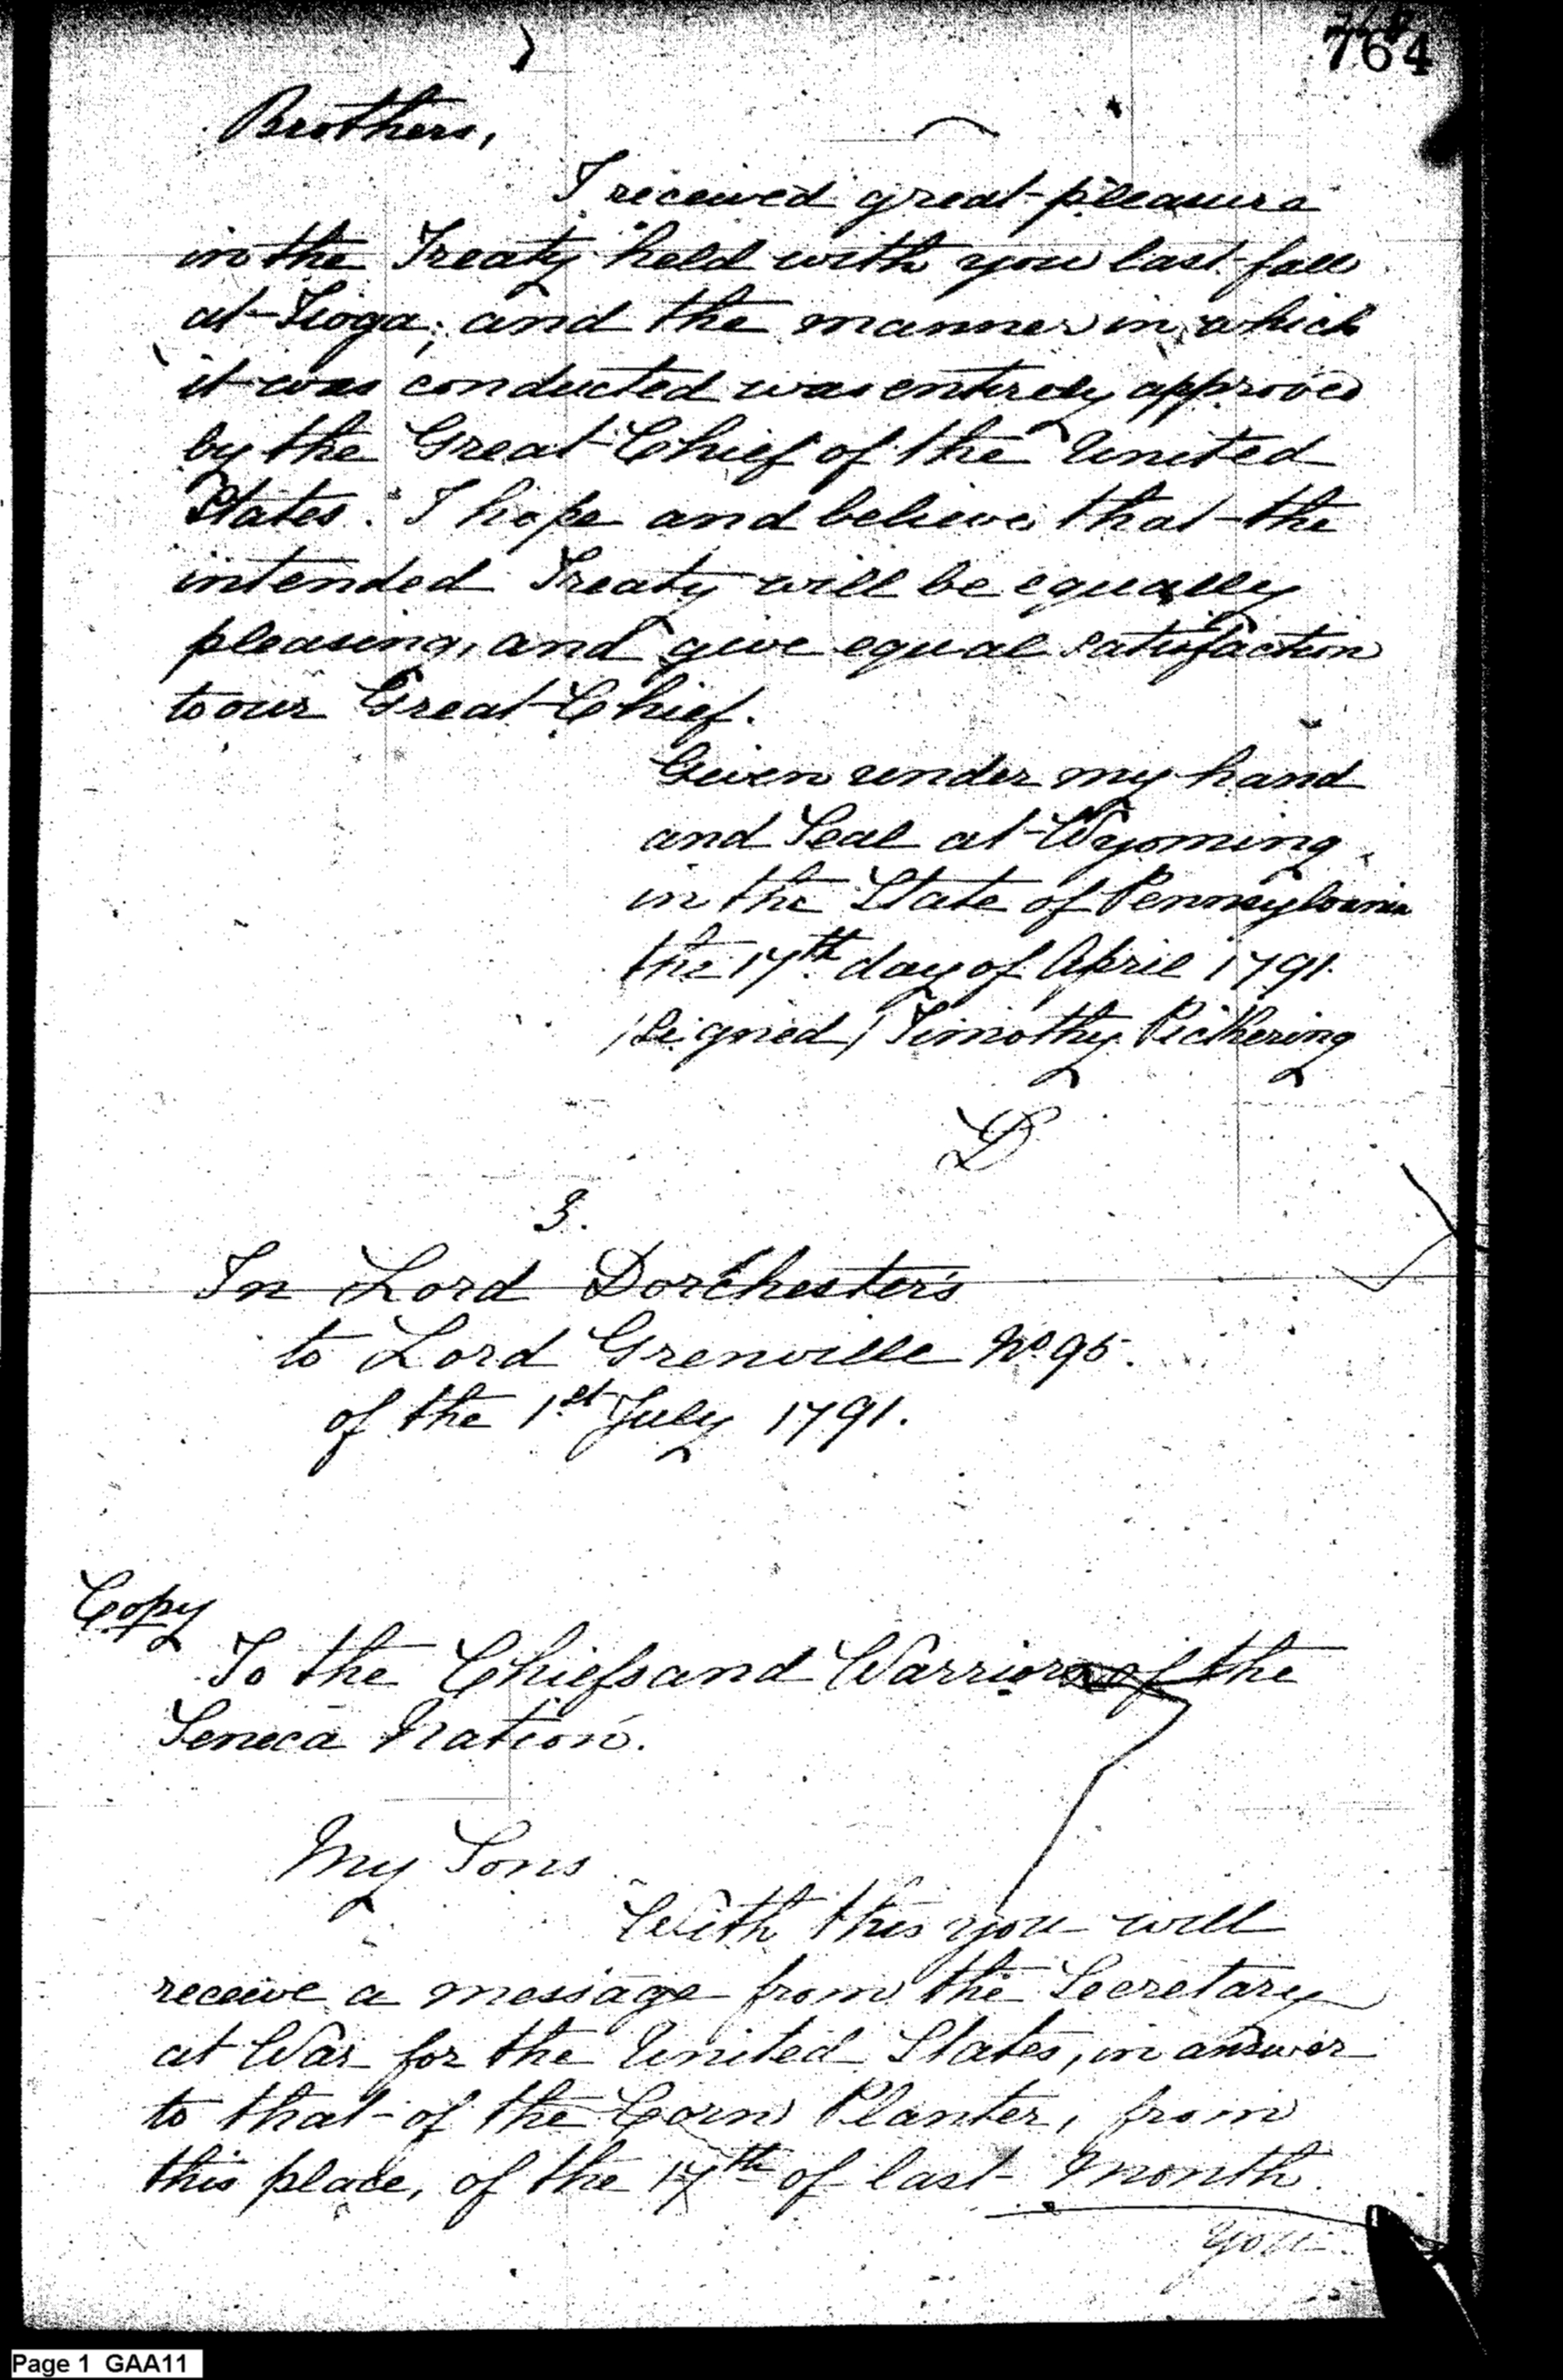 764
Brothers,
I received great pleasure
in the Treaty held with you last fall
at Tioga; and the manner in which
it was conducted was entirely approved
by the Great Chief of the United
States. I hope and believe that the
intended Treaty will be equally
pleasing, and give equal satisfaction
to our Great Chief.
Given under my hand
and Seal at Wyoming
in the State of Pennsylvania
the 17th day of April 1791.
(Signed) Timothy Pickering
D
3.
In Lord Dorchester's
to Lord Grenville No 95.
of the 1st July 1791.
Copy
To the Chiefs and Warriors of the
Seneca Nation.
My Sons
With this you will
receive a message from the Secretary
at War for the United States, in answer
to that of the Corn Planter, from
this place, of the 17th of last month.
You
Page 1 GAA11